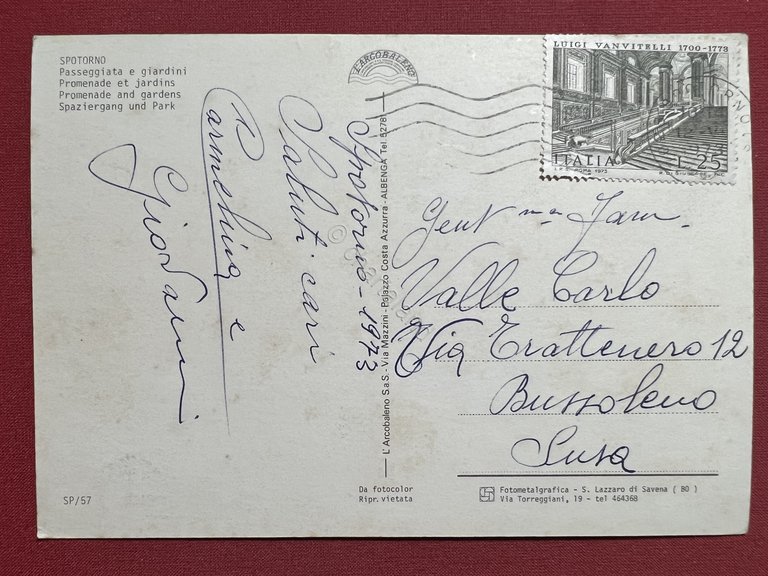 SPOTORNO
Passeggiata e giardini
Promenade et jardins
Promenade and gardens
Spaziergang und Park
L'ARCOBALENO
LUIGI VANVITELLI 1700-1773
ITALIA L. 25
ROMA 1973
Spotorno - 1973
Saluti cari
Carmelina e
Giovanni
L'Arcobaleno S.a.S. - Via Mazzini - Palazzo Costa Azzurra - ALBENGA Tel. 52781
Gent ma Fam.
Valle Carlo
Via Trattenero 12
Bussoleno
Susa
SP/57
Da fotocolor
Ripr. vietata
Fotometalgrafica - S. Lazzaro di Savena ( BO )
Via Torreggiani, 19 - tel 464368